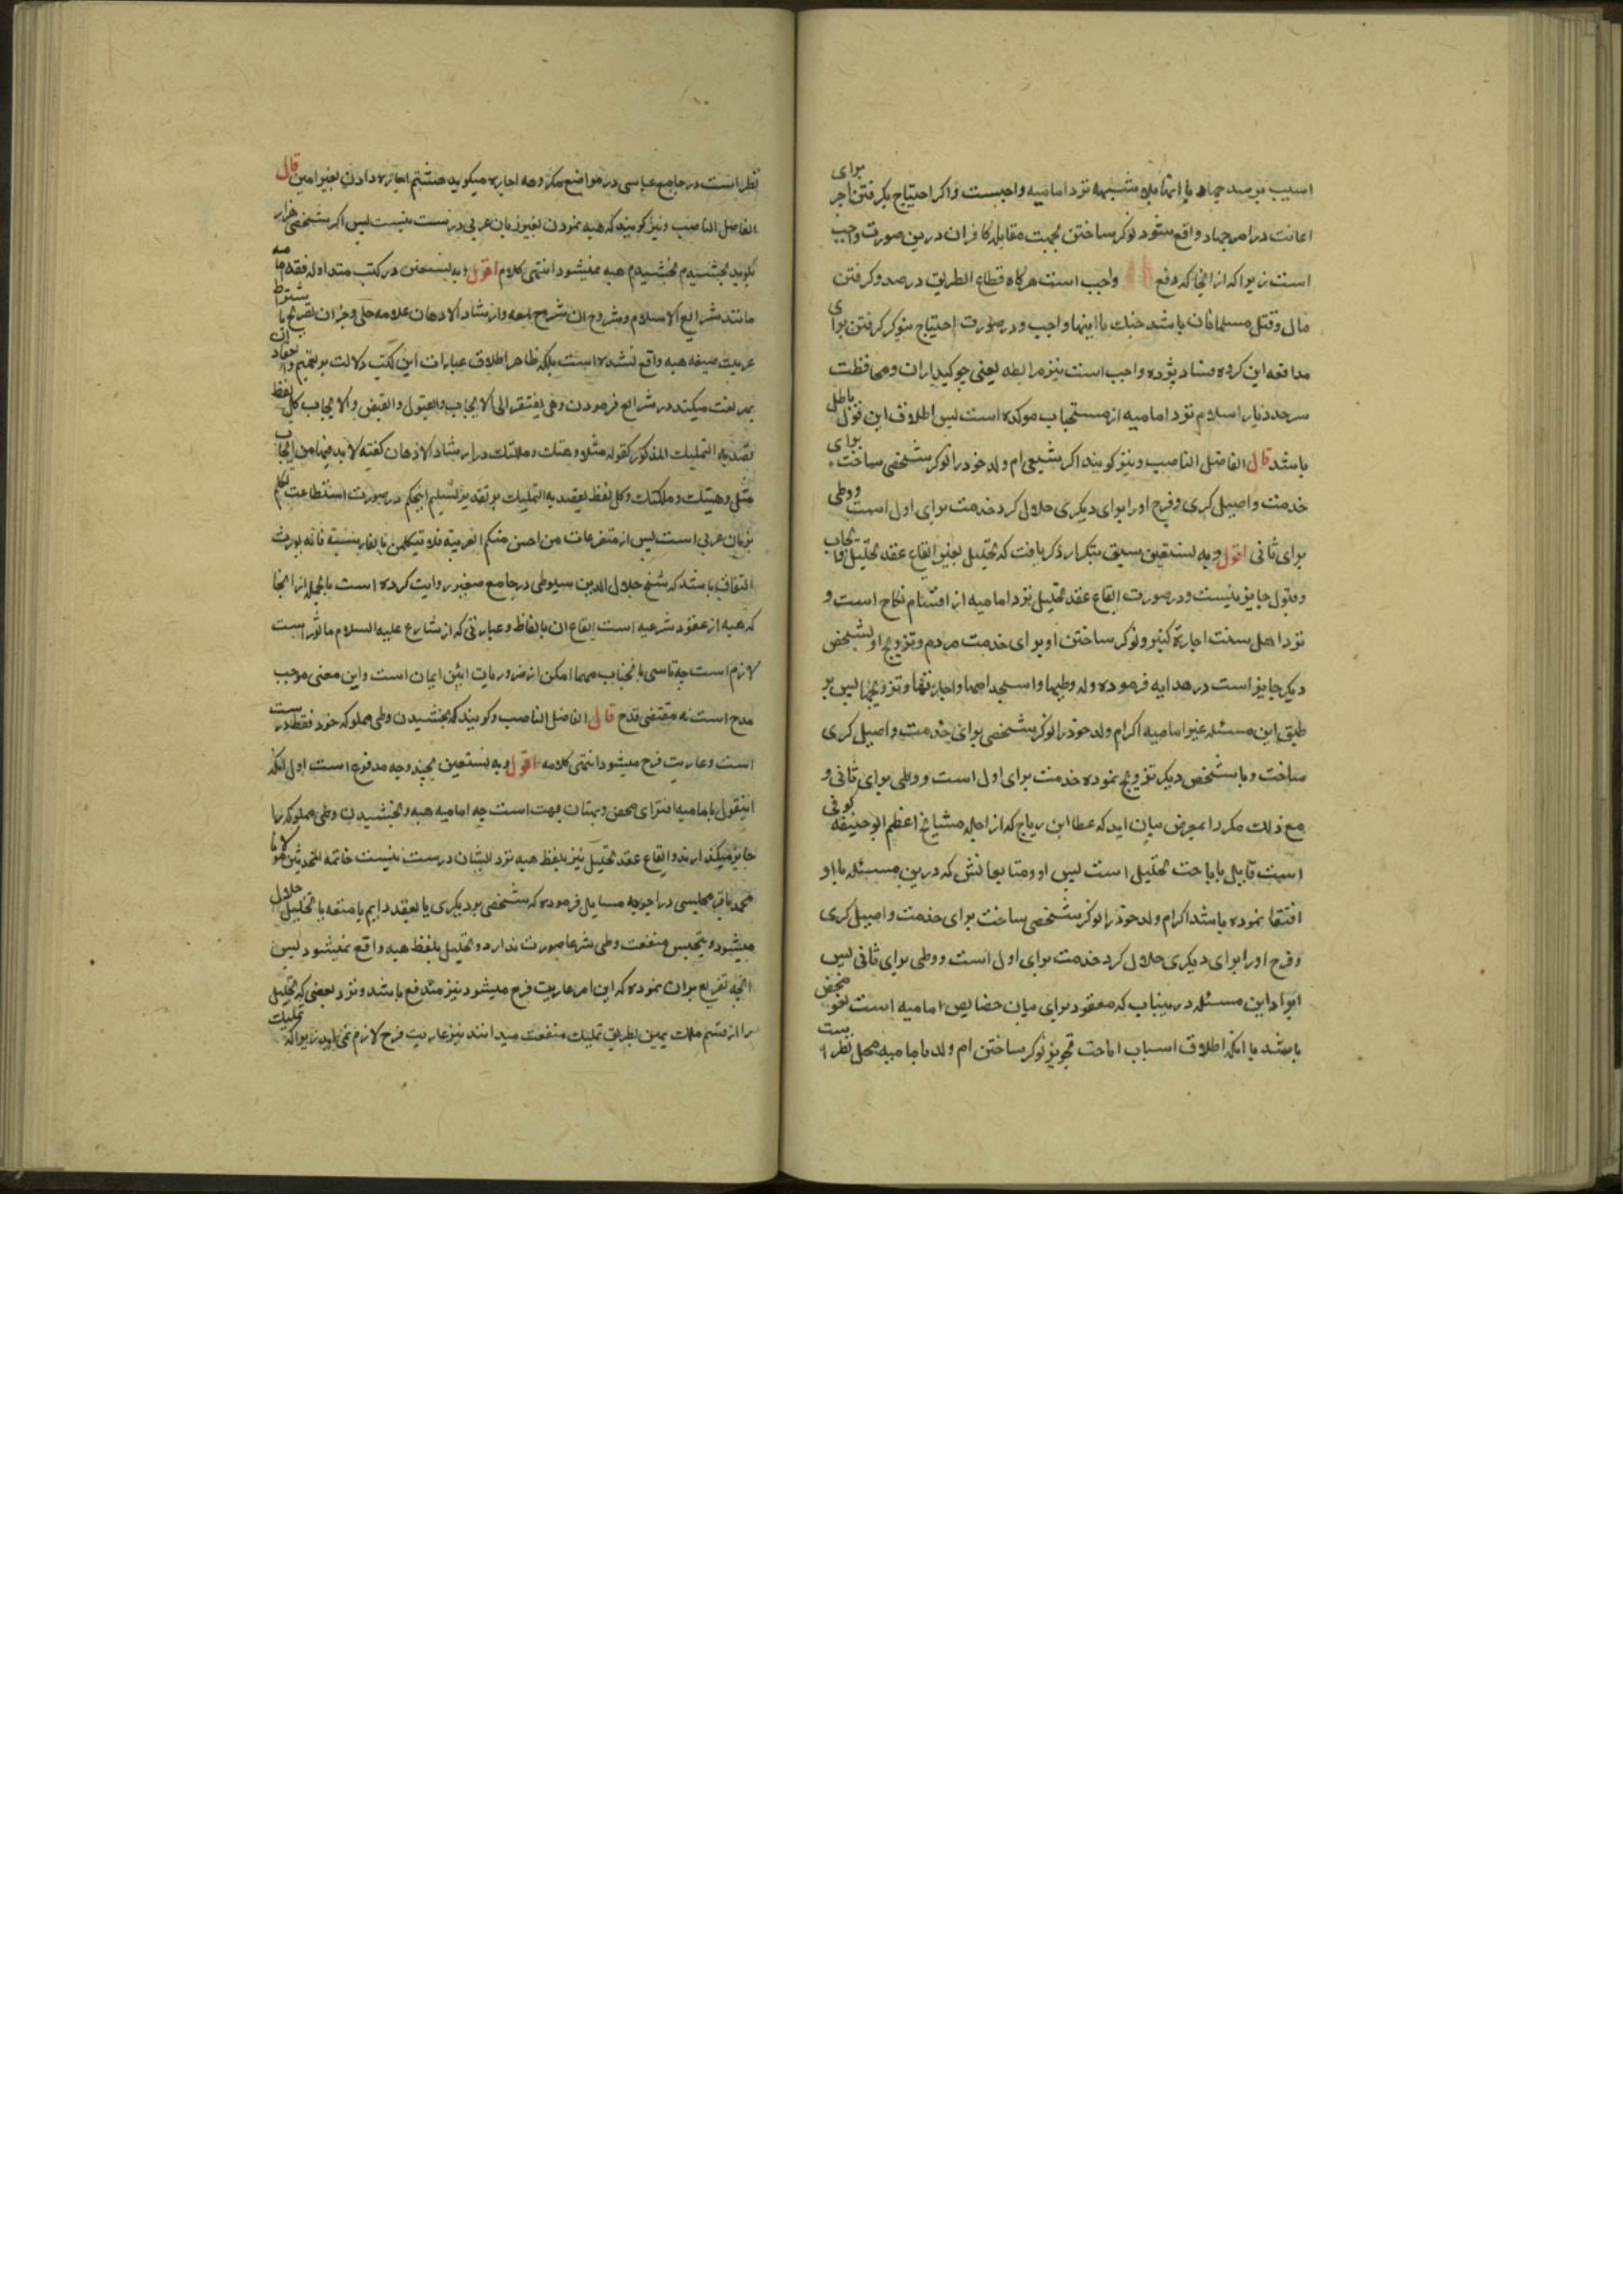 اسیب برسد جهاد با اینها بلا شبهه نزد امامیه واجبست واکر احتیاج بکرفتن اجر برای
اعانت در امر جهاد واقع شود نوکر ساختن بجهت مقابله کافران درین صورت واجب
است زیرا که از انجا که دفع واجب است هرکاه قطاع الطریق در صدد کرفتن
مال و قتل مسلمانان باشد جنک با اینها واجب و در صورت احتیاج بنوکر کرفتن برای
مدافعه این کروه شاد پژده واجب است نیز مرابطه یعنی چوکیداران ومحافظت
سرحد دیار اسلام نزد امامیه از مستحبات موکده است پس اطلاق این قول باطل
باشد قال الفاضل الناصب ونیز کویند اکر شیعی ام ولد خود را نوکر شخصی ساخت برای
خدمت و اصیل کری و فرج او را برای دیکری حلال کرد خدمت برای اول است و وطی
برای ثانی اقول وبه نستعین سبق بتکرار ذکر یافت که تحلیل بغیر ایقاع عقد تحلیل با ایجاب
وقبول جایز نیست ودر صورت ایقاع عقد تحلیل نزد امامیه از اقسام نکاح است و
نزد اهل سنت اجارة کنیز ونوکر ساختن او برای خدمت مردم وتزویج او بشخص
دیکر جایز است در هدایه فرموده وله وطیها واستخدامها واجارتها وتزویجها پس بر
طبق این مسئله غیر امامیه اکر ام ولد خود را نوکر شخصی برای خدمت واصیل کری
ساخت و با شخص دیکر تزویج نموده خدمت برای اول است و وطی برای ثانی و
مع ذلک مکررا بمعرض بیان امد که عطا ابن رباح که از اجله مشایخ اعظم ابو حنیفه کوفی
است قایل باباحت تحلیل است پس او ومتابعانش که درین مسئله باو
اقتفا نموده باشد اکر ام ولد خود را نوکر شخصی ساخت برای خدمت واصیل کری
وفرج او را برای دیکری حلال کرد خدمت برای اول است ووطی برای ثانی پس
ایراد این مسئله درینباب که معقود برای بیان خصایص امامیه است لغو محض
باشد با انکه اطلاق اسباب اباحت تجویز نوکر ساختن ام ولد بامامیه محل نظر است
نظر است در جامع عباسی در مواضع مکروهه اجاره میکوید هشتم اجاره دادن بغیر امین قال
الفاضل الناصب ونیز کویند که هبه نمودن بغیر زبان عربی درست نیست پس اکر شخصی هزار
بکوید بخشیدم بخشیدم هبه نمیشود انتهی کلامه اقول وبه نستعین در کتب متداوله فقه ما
مانند شرایع الاسلام وشروح ان شروح لمعه وارشاد الاذهان علامه حلی وجز ان تصریح باشتراط
عربیت صیغه هبه واقع نشده است بلکه ظاهر اطلاق عبارات این کتب دلالت بر تعمیم وجواز ان
بهر لغت میکند در شرایع فرموده وهی یفتقر الی الایجاب والقبول والقبض والایجاب کل لفظ
قصد به التملیک المذکور کقوله مثلا وهبتک وملکتک در ارشاد الاذهان کفته لابد فیها من ایجاب
مثل وهبتک وملکتک وکل لفظ یقصد به التملیک بر تقدیر تسلیم اینحکم در صورت استطاعت تکلم
بزبان عربی است پس از متفرعات من احسن منکم العربیة فلا یتکلمن بالفارسیة فانه یورث
النفاق باشد که شیخ جلال الدین سیوطی در جامع صغیر روایت کرده است بالجمله از انجا
که هبه از عقود شرعیه است ایقاع ان بالفاظ وعبارتی که از شارع علیه السلام ماثور است
لازم است چه تاسی بانجناب مهما امکن از ضروریات ائین ایمان است واین معنی موجب
مدح است نه مقتضی قدح قال الفاضل الناصب وکویند که بخشیدن وطی مملوکه خود فقط درست
است وعاریت فرج میشود انتهی کلامه اقول وبه نستعین بچند وجه مدفوع است اول انکه
اینقول بامامیه افترای محض وبهتان بهت است چه امامیه هبه وبخشیدن وطی مملوکه را
جایز نمیکند ارند وایقاع عقد تحلیل نیز بلفظ هبه نزد ایشان درست نیست خاتمه المحدثین مولانا
محمد باقر مجلسی در اجوبه مسایل فرموده که شخصی بر دیکری یا بعقد دایم یا متعه یا تحلیل حلال
میشود وبخشیدن منفعت وطی شرعا صورت ندارد وتحلیل بلفظ هبه واقع نمیشود پس
انچه تفریع بران نموده که این امر عاریت فرج میشود نیز مندفع باشد ونزد بعضی که تحلیل
را از قسم ملک یمین بطریق تملیک منفعت میدانند نیز عاریت فرج لازم نمی اید زیرا که تملیک